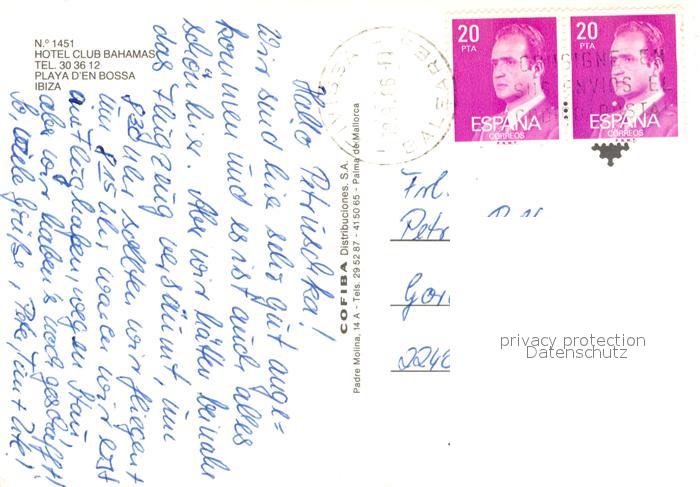 N.º 1451
HOTEL CLUB BAHAMAS
TEL. 30 36 12
PLAYA D'EN BOSSA
IBIZA
Hallo Petruschka!
Wir sind hier sehr gut ange=
kommen und es ist auch alles
schön hier. Aber wir hätten beinahe
das Flugzeug versäumt, um
8 30 Uhr sollten wir fliegen +
um 8 15 Uhr waren wir erst
am Flughafen, wegen Stau,
aber wir haben's noch geschafft!
So, viele Grüße,
COFIBA Distribuciones, S.A.
Padre Molina, 14 A - Tels. 29 52 87 - 41 50 65 - Palma de Mallorca
BALEARES
20
PTA
ESPAÑA
CORREOS
F.N.M.T.
20
PTA
ESPAÑA
CORREOS
F.N.M.T.
CONSIGNE EN
SUS ENVIOS EL
Frl.
Petr
privacy protection
Datenschutz